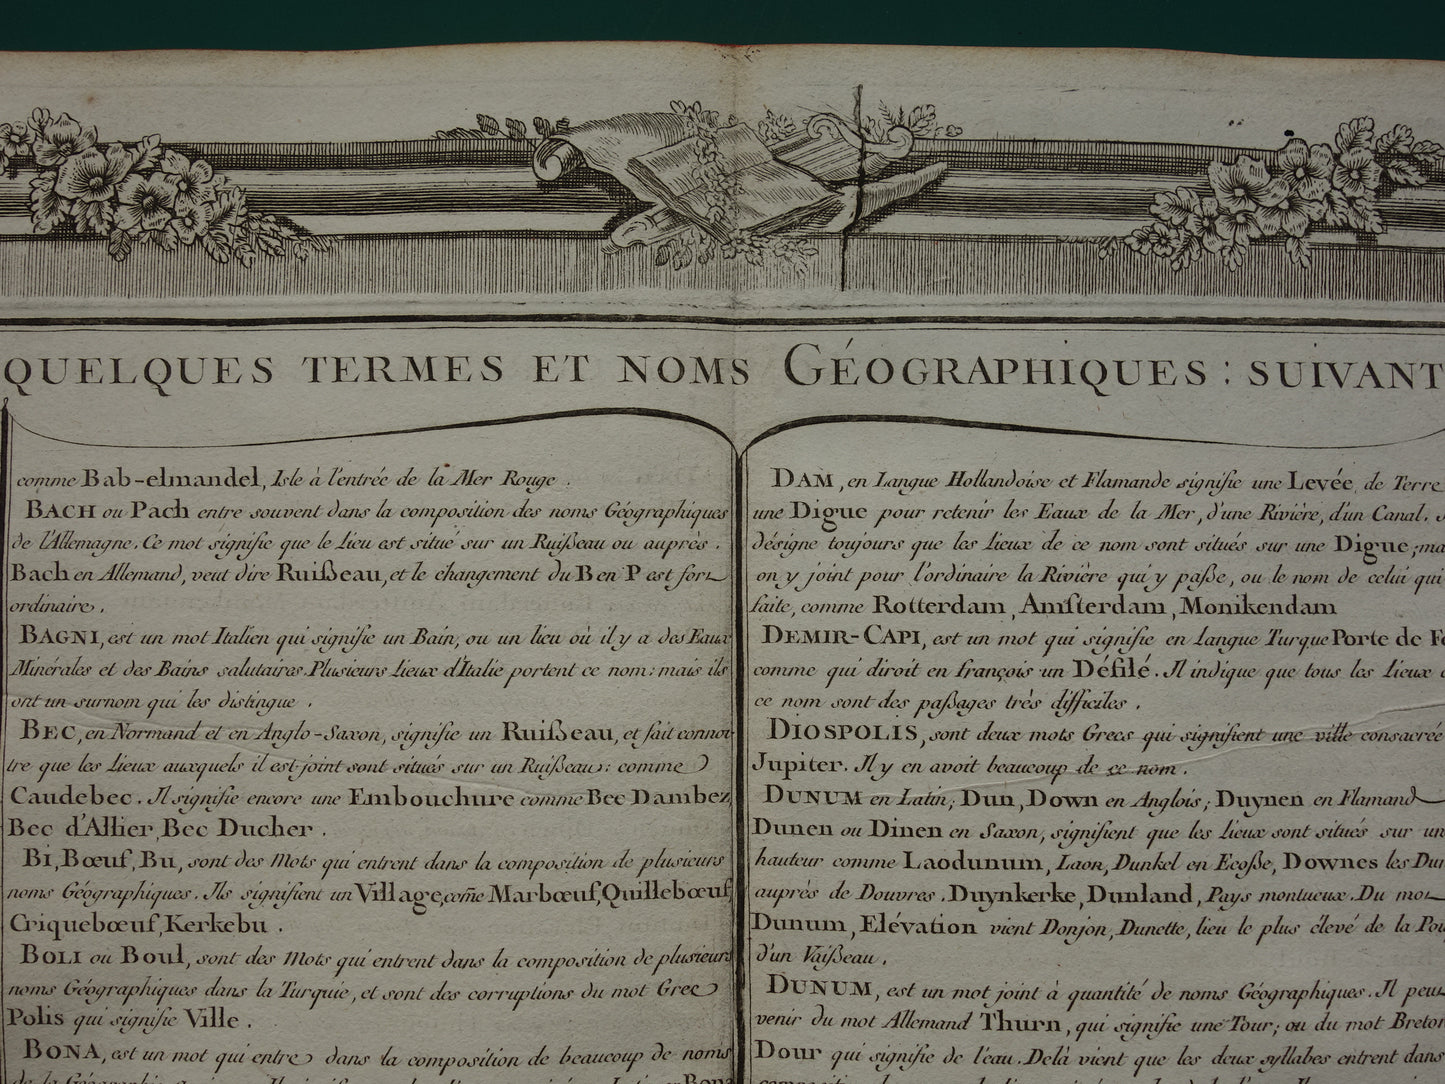 QUELQUES TERMES ET NOMS GÉOGRAPHIQUES : SUIVANT
comme Bab-elmandel, Isle à l'entrée de la Mer Rouge .
BACH ou Pach entre souvent dans la composition des noms Géographiques
de l'Allemagne. Ce mot signifie que le Lieu est situé sur un Ruißeau ou auprès .
Bach en Allemand, veut dire Ruißeau, et le changement du B en P est fort
ordinaire .
BAGNI, est un mot Italien qui signifie un Bain, ou un lieu où il y a des Eaux
Minérales et des Bains salutaires. Plusieurs Lieux d'Italie portent ce nom : mais ils
ont un surnom qui les distingue .
BEC, en Normand et en Anglo-Saxon, signifie un Ruißeau, et fait connoi-
tre que les Lieux auxquels il est joint sont situés sur un Ruißeau : comme
Caudebec . Il signifie encore une Embouchure comme Bec Dambez,
Bec d'Allier, Bec Ducher .
BI, Bœuf, Bu, sont des Mots qui entrent dans la composition de plusieurs
noms Géographiques . Ils signifient un Village, com̃e Marbœuf, Quillebœuf,
Criquebœuf, Kerkebu .
BOLI ou Boul, sont des Mots qui entrent dans la composition de plusieurs
noms Géographiques dans la Turquie, et sont des corruptions du mot Grec
Polis qui signifie Ville .
BONA, est un mot qui entre dans la composition de beaucoup de noms
DAM, en Langue Hollandoise et Flamande signifie une Levée, de Terre
une Digue pour retenir les Eaux de la Mer, d'une Rivière, d'un Canal.
désigne toujours que les Lieux de ce nom sont situés sur une Digue ; ma
on y joint pour l'ordinaire la Rivière qui y paße, ou le nom de celui qui
faite, comme Rotterdam, Amsterdam, Monikendam
DEMIR-CAPI, est un mot qui signifie en Langue Turque Porte de Fe
comme qui diroit en françois un Défilé . Il indique que tous les Lieux
ce nom sont des paßages très difficiles .
DIOSPOLIS, sont deux mots Grecs qui signifient une ville consacrée
Jupiter. Il y en avoit beaucoup de ce nom .
DUNUM en Latin ; Dun, Down en Anglois ; Duynen en Flamand
Dunen ou Dinen en Saxon, signifient que les Lieux sont situés sur un
hauteur comme Laodunum, Laon, Dunkel en Ecoße, Downes les Dun
auprès de Douvres . Duynkerke, Dunland, Pays montueux . Du mot
Dunum, Elévation vient Donjon, Dunette, lieu le plus élevé de la Pou
d'un Vaißeau .
DUNUM, est un mot joint à quantité de noms Géographiques . Il peut
venir du mot Allemand Thurn, qui signifie une Tour ; ou du mot Breton
Dour qui signifie de l'eau . Delà vient que les deux syllabes entrent dans